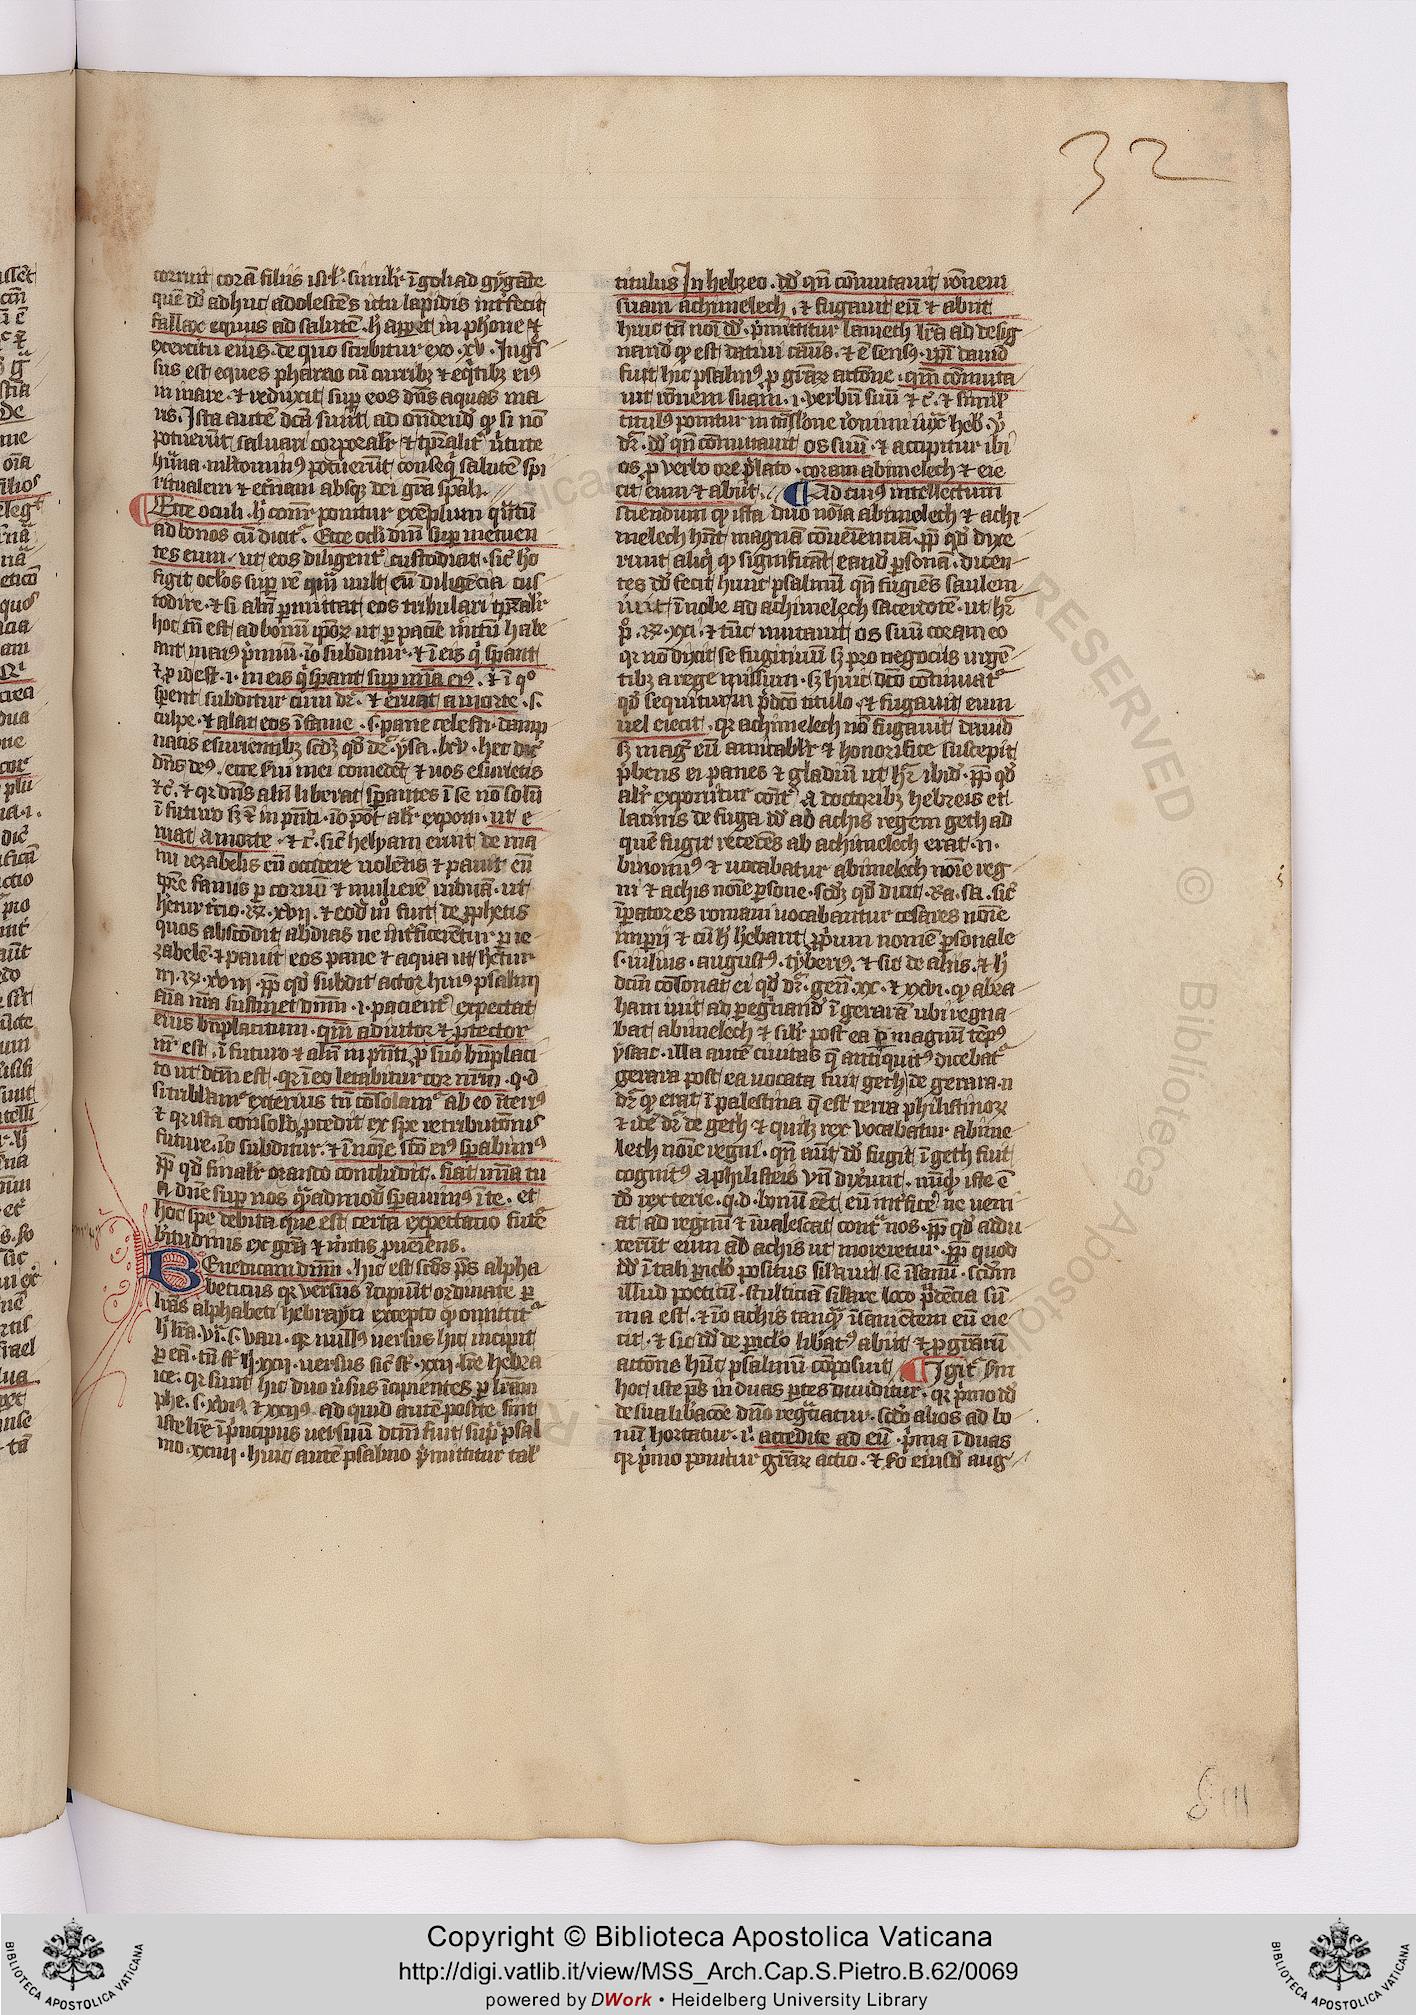 32
corruit corā filiis isrl̛. similr̛ ī golīad gygāte
quē dd̛ adhuc adolescēs ictu lapidis int̛fecit
fallax equus ad salutē. h̛ apparet in phr̄one ⁊
exercitu eius. de quo scribitur exo. xv. Ingr̄s
sus est eques pharao cū curribꝫ ⁊ eqͥtibꝫ eiꝰ
in mare. ⁊ reduxit sup̱ eos dn̄s aquas ma
ris. Ista autē dc̄a sunt ad on̄dendū ꝙ si nō
potuerūt saluari corporalr̛ ⁊ tp̄ralit̛ v̛tute
hūana. multominꝰ potuerūt conseqͥ salutē spi
ritualem ⁊ et̛nam absqꝫ dei grā sp̄ali.
Ecce oculi. h̛ conr̛ ponitur exēplum qͣntū
ad bonos cū dicitͬ. Ecce ocl̛i dn̄i sup̱ metuen
tes eum. ut eos diligent̛ custodiat. sic̛ ho
figit oclōs sup̱ rē quā uult cū diligēcia cus
todire. ⁊ si aln̄ p̱mittat eos tribulari tp̄ralr̛
hoc tn̄ est ad bonū ip̄oꝝ ut p̱ paciē m̛itū habe
ant maiꝰ p̛miū. iō subditur. ⁊ ī eis qͥ sp̱ant
⁊ꝓ id est. i. in eis qͥ sp̱ant sup̱ mīa eiꝰ. ⁊ ī qͦ
sp̱ent subditur cum dr̄. ⁊ eruat a morte. s.
culpe. ⁊ alat eos ī fame. s. pane celesti. damp
natis esurientibꝫ scd̄ꝫ qd̛ dr̄ ysa. lxv. hec dic̛
dn̄s deꝰ. ecce s̛ui mei comedēt ⁊ uos esurietis
⁊c̛. ⁊ qr dn̄s aln̄ liberat sp̱antes ī se nō solū
ī futuro sꝫ ⁊ in pn̄ti. iō pōt alr̛ exponi. ut e
ruat a morte. ⁊ c̛. sic̛ helyam eruit de ma
nu iezabelis eū occidere uolētis ⁊ pauit eū
tp̱re famis p̱ coruū ⁊ mulierē uiduā. ut
hetur t̛cio. rꝫ. xvii. ⁊ eod̛ mͦ fuit de ꝓphetis
quos abscondit abdias ne int̛ficerētur p̱ ie
zabelē. ⁊ pauit eos pane ⁊ aqua ut hetur
iii. rꝫ. xviii. ꝓp̱ qd̛ subdit actor huiꝰ psalmi
aīa nr̄a sustinet dn̄m. i. pacient̛ expectat
eius bn̄placitum. qm̄ adiutor ⁊ ꝓtector
nr̄ est. ī futuro ⁊ aln̄ in pn̄ti ꝓ suo bn̄placi
to ut dc̄m est. qr ī eo letabitur cor nr̄m. q. d̛
si tribl̄amͬ exterius tn̄ cōsolamͬ ab eo īteriꝰ
⁊ qr ista consolō ꝓcedit ex spe retributōnis
future. iō subditur. ⁊ ī noīe scō eiꝰ sp̱abimꝰ
ꝓp̱ qd̛ finalr̛ orando concludit. fiat mīa tu
a dn̄e sup̱ nos quēadmod̛ sp̱auimꝰ ī te. et
hoc spe debita que est certa expectatio futͬe
b̛itudinis ex grā ⁊ m̛itis ꝓueniens.
Benedicam dn̄m. hic est scds ps alpha
beticus qr versus īcipiūt ordinate p̱
lr̄as alphabeti hebrayci excepto ꝙ omittitͬ
h̛ lr̄a. vi. s. vau. qr nullꝰ uersus hic incipit
p̱ eā. tn̄ st̄ h̛ xxii. uersus sic̛ st̄. xxii. lr̄e hebra
ice. qr sunt hic duo v̛sus īcipientes p̱ lr̄am
phe. s. xviꝰ. ⁊ xxiiꝰ. ad quid autē posite sint
iste lr̄e ī pͥncipiis uersuū dc̄m fuit supͣ psal
mo. xxiiii. huic autē psalmo p̛mittitur tal̛
titulus In hebreo. dd̛ qn̄ cōmutauit rōnem
suam achimelech. ⁊ fugauit eū ⁊ abiit
huic tn̄ noī dd̛. p̛mittitur lameth lr̄a ad desig
nand̛ ꝙ est datiui casus. ⁊ ē sensꝰ. ip̄i dauid
fuit hic psalmꝰ ꝓ grāꝝ actōne. qm̄ cōmuta
uit rōnem suam. i. verbū suū ⁊ c̛. ⁊ simil̛
titulus ponitur in tn̄slōne ieronimi iuxͣ heb. vͥ
dr̄. dd̛ qn̄ cōmutauit os suū. ⁊ accipitur ibi
os ꝓ verbo ore ꝓlato. coram abimelech ⁊ eie
cit eum ⁊ abiit. Ad cuiꝰ intellectum
sciendum ꝙ ista duo noīa abimelech ⁊ achi
melech hn̄t magnā cōueniencīā. ꝓp̱ qd̛ dixe
runt aliqͥ ꝙ significāt eand̛ p̱sonā. dicen
tes dd̛ fecit hunc psalmū qn̄ fugiēs saulem
iuit ī nobe ad achimelech sacerdotē. ut hr̄
pͦ. rꝫ. xxi. ⁊ tūc mutauit os suū coram eo
qr nō dixit se fugitiuū sꝫ pro negociis urgē
tibꝫ a rege missum. sꝫ huic dc̄o contrariatͬ
qd̛ sequitur in p̛dc̄o titulo. ⁊ fugauit eum
uel eiecit. qr achimelech nō fugauit dauid
sꝫ magͥ eū amicablr̛ ⁊ honorifice suscepit
p̛bens ei panes ⁊ gladiū ut hr̄ ibid̛. ꝓp̱ qd̛
alr̛ exponitur cōit̛ a doctoribꝫ hebreis et
latinis de fuga dd̛ ad achis regem geth ad
quē fugit recedēs ab achimelech erat. n.
binomiꝰ ⁊ uocabatur abimelech noīe reg
ni ⁊ achis noīe p̱sone. scd̄ꝫ qd̛ dicit. Ra. sa. sic̛
īp̱atores romani uocabantur cesares noīe
imp̱ij ⁊ cū h̛ h̛ebant ꝓp̛um nomē p̱sonale
s. iulius. augustꝰ. tyberiꝰ. ⁊ sic de aliis. ⁊ h̛
dc̄m cōsonat ei qd̛ dr̄. gen̄. xx. ⁊ xxvi. ꝙ abra
ham iuit ad p̱egͥnand̛ ī gerarā ubi regna
bat abimelech ⁊ silr̛ post ea p̱ magnū tēpꝰ
ysaac. illa autē ciuitas q̄ antiquitꝰ dicebatͬ
gerara post ea uocata fuit geth. de gerara. n̄
dr̄ ꝙ erat ī palestina q̄ est terra philistinoꝝ
⁊ idē dr̄ de geth ⁊ quilꝫ rex vocabatur abime
lech noīe regni. qn̄ aut̄ dd̛ fugit ī geth fuit
cognitꝰ a philisteis vn̄ dixerunt. nūqͥd iste ē
dd̛ rex terre. q. d. bonū eēt eū int̛ficͤ ne ueni
at ad regnū ⁊ īualescat contͣ nos. ꝓp̱ qd̛ addu
xerunt eum ad achis ut moreretur. ꝓp̱ quod
dd̛ ī tali pericl̛o positus silauit se īsanū. scdm
illud poeticū. stulticiā silare loco prudēcia sū
ma est. ⁊ iō achis tanqͣ īsanientem eū eie
cit. ⁊ sic dd̛ de pericl̛o lib̛atꝰ abiit ⁊ ꝓ grārū
actōne hūc psalmū cōposuit. Igitͬ s̛m
hoc iste ps̄ in duas p̱tes diuiditur. qr pͥmo dd̛
de sua lib̛acōe dn̄o regͬciatur. scdơ alios ad bo
nū hortatur. i. accedite ad eū. pͥma ī duas
qr pͥmo ponitur grāꝝ actio. ⁊ fō eiusd̛ aug
Copyright © Biblioteca Apostolica Vaticana
http://digi.vatlib.it/view/MSS_Arch.Cap.S.Pietro.B.62/0069
powered by DWork • Heidelberg University Library